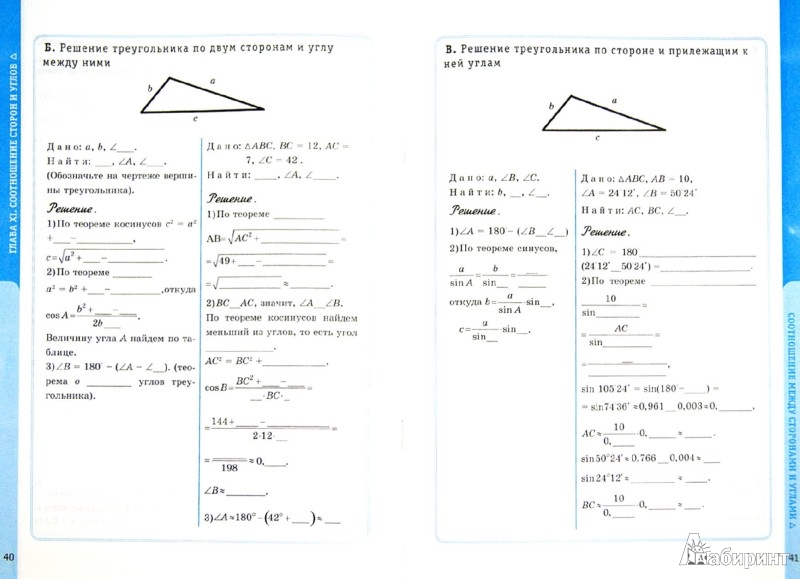 ГЛАВА XI. СООТНОШЕНИЕ СТОРОН И УГЛОВ △
Б. Решение треугольника по двум сторонам и углу
между ними
b
a
c
Дано: a, b, ∠___.
Найти: ___, ∠A, ∠___.
(Обозначьте на чертеже верши-
ны треугольника).
Решение.
1) По теореме косинусов c² = a²
+___ – __________,
c=√a² + ___ – __________.
2) По теореме ________
a² = b² + ___ – ________, откуда
cosA= b²+ ___ – ___ / 2b ___ .
Величину угла A найдем по та-
блице.
3) ∠B = 180° – (∠A – ∠__). (тео-
рема о ________ углов треу-
гольника).
Дано: △ABC, BC = 12, AC =
7, ∠C = 42 .
Найти: ____, ∠A, ∠____.
Решение.
1) По теореме __________
AB=√AC² + ______________ =
=√49+ ___ – __________ =
=√__________ ≈ ________.
2) BC__AC, значит, ∠A__∠B.
По теореме косинусов найдем
меньший из углов, то есть угол
______________.
AC² = BC² + ____________,
cosB= BC² + ___ – ___ / __·BC·__ =
= 144+ ____ – ____ / 2·12 __ =
= ____ / 198 ≈ 0,___.
∠B≈ ________,
3) ∠A ≈180° – (42° + ___) ≈ ___
40
В. Решение треугольника по стороне и прилежащим к
ней углам
b
a
c
Дано: a, ∠B, ∠C.
Найти: b, __, ∠__.
Решение.
1) ∠A = 180 – (∠B__∠__)
2) По теореме синусов,
a / sinA = b / sin__ = ___ / ___
откуда b= a / sinA · sin__,
c= a / sin__ · sin__.
Дано: △ABC, AB = 10,
∠A = 24 12′, ∠B = 50 24′
Найти: AC, BC, ∠__.
Решение.
1) ∠C = 180 ______________
(24 12′__50 24′) = ____________.
2) По теореме ______________
10 / sin________ =
= AC / sin________ =
= ___ / ________,
sin 105 24′ = sin(180 – ____) =
= sin74 36′ ≈ 0,961__0,003≈0,______.
AC≈ 10 / 0,____ ·0,____ ≈ ____.
sin50°24′ ≈ 0.766__0,004 ≈ ___
sin24°12′≈ _________ ≈ ____,
BC≈ 10 / 0.____ ·0,____ ≈ ____.
СООТНОШЕНИЕ МЕЖДУ СТОРОНАМИ И УГЛАМИ △
41
Лабиринт